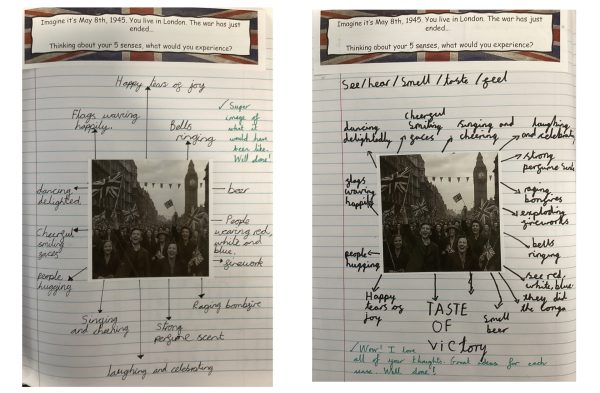 Imagine it's May 8th, 1945. You live in London. The war has just
ended...
Thinking about your 5 senses, what would you experience?
Happy tears of joy
Flags waving
happily
Bells
ringing
✓ Super
image of
what it
would have
been like.
Well done!
dancing
delighted
beer
Cheerful
smiling
faces
People
wearing red,
white and
blue.
firework
people
hugging
Raging bombfire
Singing
and cheering
Strong
perfume scent
laughing and celebrating
Imagine it's May 8th, 1945. You live in London. The war has just
ended...
Thinking about your 5 senses, what would you experience?
See/hear/smell/taste/feel
dancing
delightedly
Cheerful
Smiling
faces
singing and
cheering
laughing
and celebrating
strong
perfume
flags
waving
happily
raging
bonfires
exploding
fireworks
bells
ringing
people
hugging
see red,
white, blue
they did
the conga
Happy
tears of
joy
TASTE
OF
ViCtory
Smell
beer
✓ Wow! I love
all of your thoughts. Great ideas for each
sense. Well done!